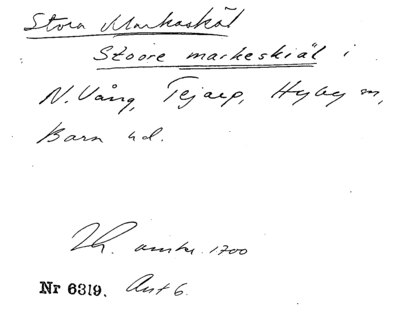 Stora Markaskäl
Stoore markeskiäl i
N. Vång, Tejarp, Hyby sn,
Bara hd.
Lh. omkr. 1700
Nr 6319. Ant 6.